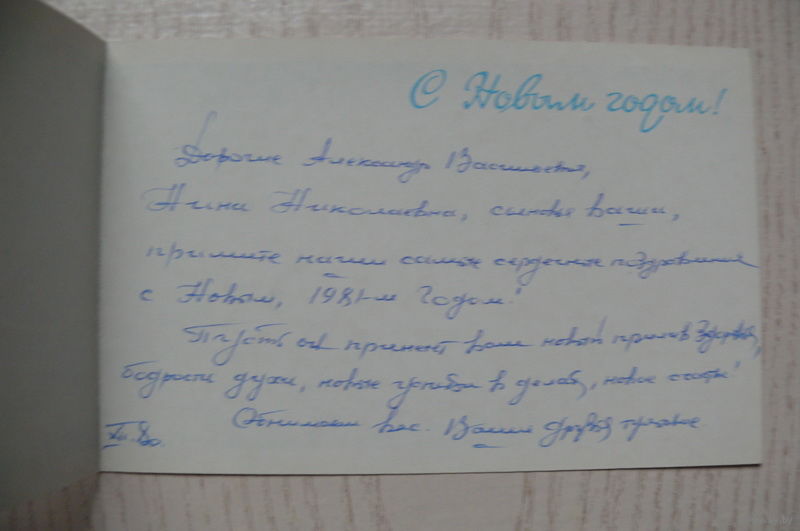 С Новым годом!
Дорогие Александр Васильевич,
Нина Николаевна, сыновья ваши,
примите наши самые сердечные поздравления
с Новым, 1981-м Годом!
Пусть он принесет вам новый прилив здоровья,
бодрости духа, новые успехи в делах, новое счастье!
Обнимаем вас. Ваши друзья
XII.80.